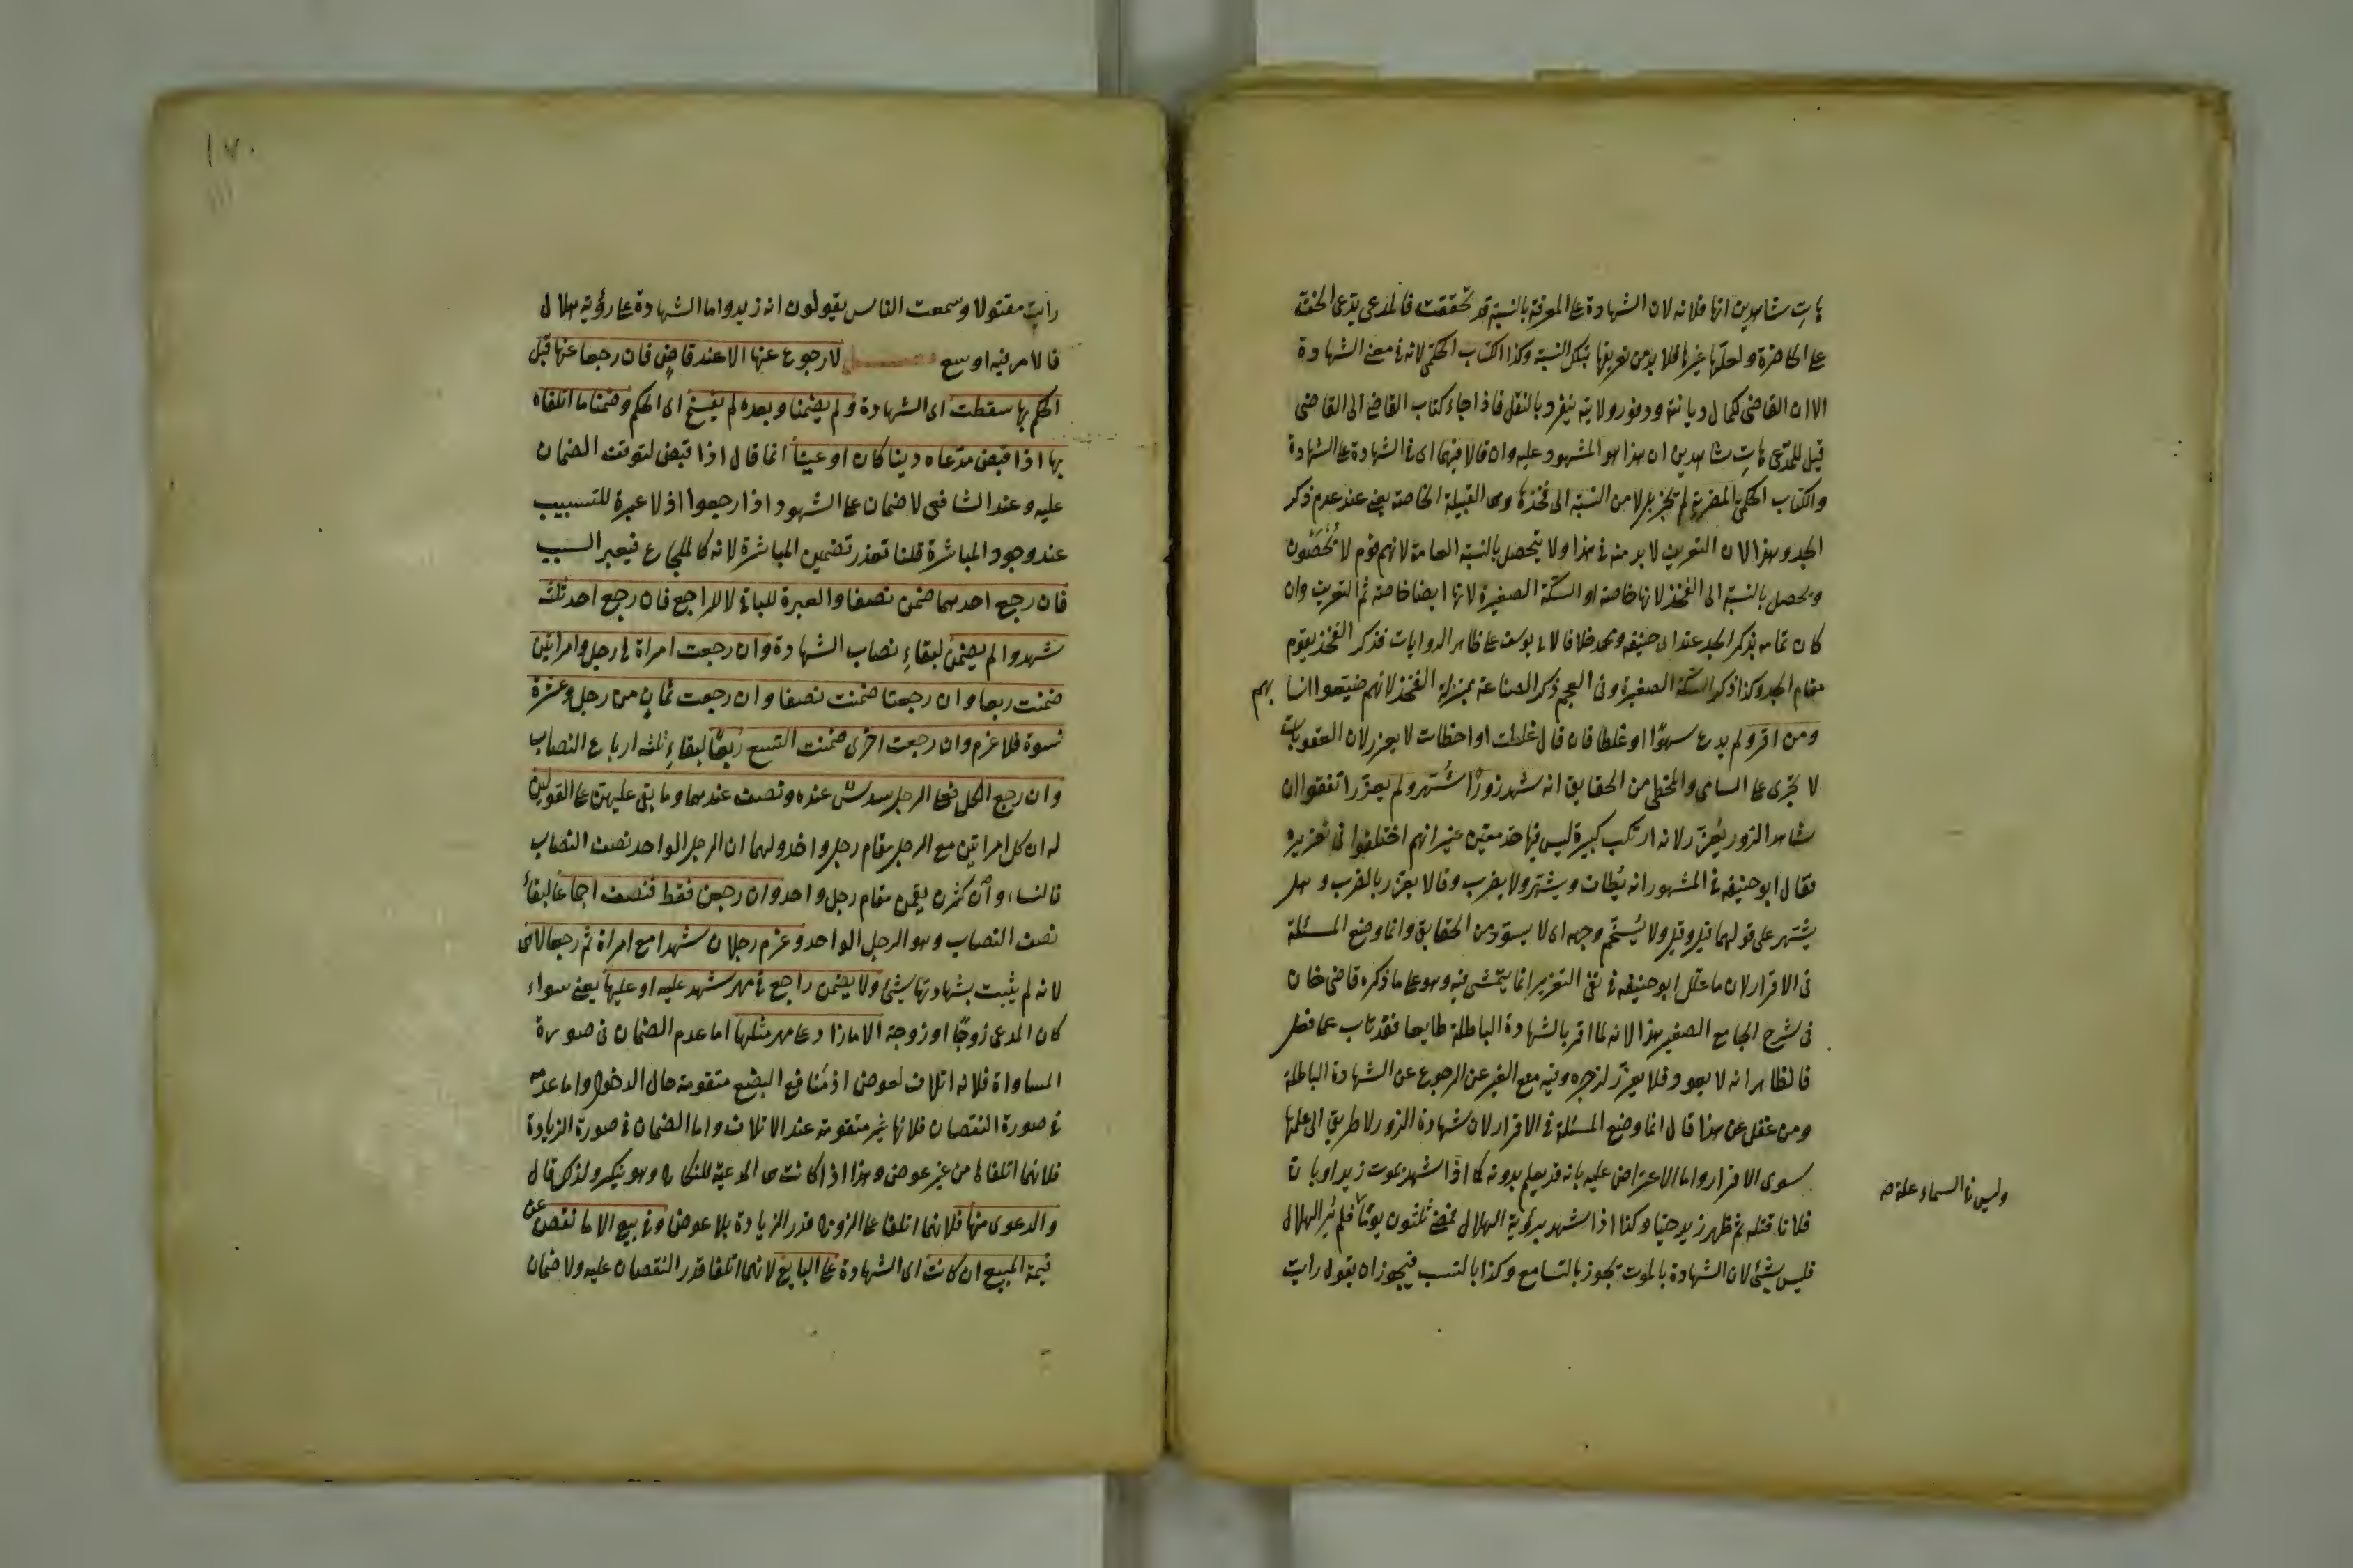 هات شاهدين انها فلانه لان الشهادة على المعرفة بالنسبة قد تحققت فالمدعى يدعى الحق
على الحاضرة ولعلها غيرها فلا بد من تعريفها بتلك النسبة وكذا الكتاب الحكمى لانه فى معنى الشهادة
الا ان القاضى لكمال ديانته ووفور ولايته ينفرد بالنقل فاذا جاء كتاب القاضى الى القاضى
قيل للمدعى هات شاهدين ان هذا هو المشهود عليه وان قالا فيهما اى فى الشهادة على الشهادة
والكتاب الحكمى المضرية لم تجز بلا من النسبة الى فخذها وهى القبيلة الخاصة يعنى عند عدم ذكر
الجد وهذا لان التعريف لا بد منه فى هذا ولا يتحصل بالنسبة العامة لانهم قوم لا يُحْصَون
ويحصل بالنسبة الى الفخذ لانها خاصة او السكة الصغيرة لانها ايضا خاصة ثم التعريف وان
كان تمامه بذكر الجد عند ابى حنيفه ومحمد خلافا لابى يوسف على ظاهر الروايات فذكر الفخذ يقوم
مقام الجد وكذا ذكر السكة الصغيرة وفى العجم ذكر الصناعة بمنزلة الفخذ لانهم ضيعوا انسا بهم
ومن اقر ولم يدع سهوًا او غلطا فان قال غلطت او اخطات لا يعزر لان العقوبات
لا تجرى على الساهى والمخطى من الحقايق انه شهد زورًا شُهّر ولم يعزّر اتفقوا ان
شاهد الزور يُعزّر لانه ارتكب كبيرة ليس فيها حد معين غير انهم اختلفوا فى تعزيره
فقال ابو حنيفه فى المشهور انه يُطاف ويشتهر ولا يضرب وقالا يعزّر بالضرب وهل
يشتهر على قولهما فيه وقيل ولا يُسَخّم وجهه اى لا يسوّد من الحقايق وانما وضع المسئلة
فى الاقرار لان ما علل ابو حنيفه فى نفى التعزير انما يتمشى فيه وهو على ما ذكره قاضى خان
فى شرح الجامع الصغير هذا لانه لما اقر بالشهادة الباطلة طايعا فقد تاب عما فعل
فالظاهر انه لا يعود فلا يعزّر لزجره وفيه منع الغير عن الرجوع عن الشهادة الباطلة
ومن غفل عن هذا قال انما وضع المسئلة فى الاقرار لان شهادة الزور لا طريق الى علمها
سوى الاقرار واما الاعتراض عليه بانه قد يعلم بدونه كما اذا شهد بموت زيد او بان
فلانا قتله ثم ظهر زيد حيّا وكذا اذا شهد برؤية الهلال فمضى ثلثون يومًا فلم يُرَ الهلال
وليس فى السماء علة صح
فليس بشئ لان الشهادة بالموت تجوز بالتسامع وكذا بالنسب فيجوز ان يقول رايت
١٧٠
رايت مقتولا وسمعت الناس يقولون انه زيد واما الشهادة على رؤية هلال
فالامر فيه اوسع لا رجوع عنها الا عند قاضٍ فان رجعا عنها قبل
الحكم بها سقطت اى الشهادة ولم يضمنا وبعده لم يفسخ اى الحكم وضمنا ما اتلفاه
بها اذا قبض مدّعاه دينا كان او عينًا انما قال اذا قبض لتوقف الضمان
عليه وعند الشافعى لا ضمان على الشهود اذا رجعوا اذ لا عبرة للتسبيب
عند وجود المباشرة قلنا تعذر تضمين المباشرة لانه كالملجاء فيعبر السبب
فان رجع احدهما ضمن نصفا والعبرة للباقى لا للراجع فان رجع احد ثلثة
شهدوا لم يضمن لبقاءِ نصاب الشهادة وان رجعت امراة فى رجل وامراتين
ضمنت ربعا وان رجعتا ضمنت نصفا وان رجعت ثمانٍ من رجل وعشرة
نسوة فلا غرم وان رجعت اخرى ضمنت التسع ربعًا لبقاءِ ثلثه ارباع النصاب
وان رجع الكل فعلى الرجل سدسٌ عنده ونصف عندهما وما بقى عليهن على القولين
له ان كل امراتين مع الرجل مقام رجل واحد ولهما ان الرجل الواحد نصف النصاب
فالنساء وان كثرن يقمن مقام رجل واحد وان رجعن فقط فنصف اجماعًا لبقاء
نصف النصاب وهو الرجل الواحد وغرم رجلان شهدا مع امراة ثم رجعا لا هى
لانه لم يثبت بشهادتها شئ ولا يضمن راجع فى مهر شهد عليه او عليها يعنى سواء
كان المدعى زوجًا او زوجة الا ما زاد على مهر مثلها اما عدم الضمان فى صورة
المساواة فلانه اتلاف لعوض اذ منافع البضع متقومة حال الدخول واما عدمه
فى صورة النقصان فلانها غير متقومة عند الاتلاف واما الضمان فى صورة الزيادة
فلانهما اتلفاها من غير عوض وهذا اذا كانت هى المدعية للنكاح وهو ينكر ولذلك قال
والدعوى منها فلانهما اتلفا على الزوج قدر الزيادة بلا عوض وفى بيع الا ما نقص عن
قيمة المبيع ان كانت اى الشهادة على البايع لانهما اتلفا قدر النقصان عليه ولا ضمان